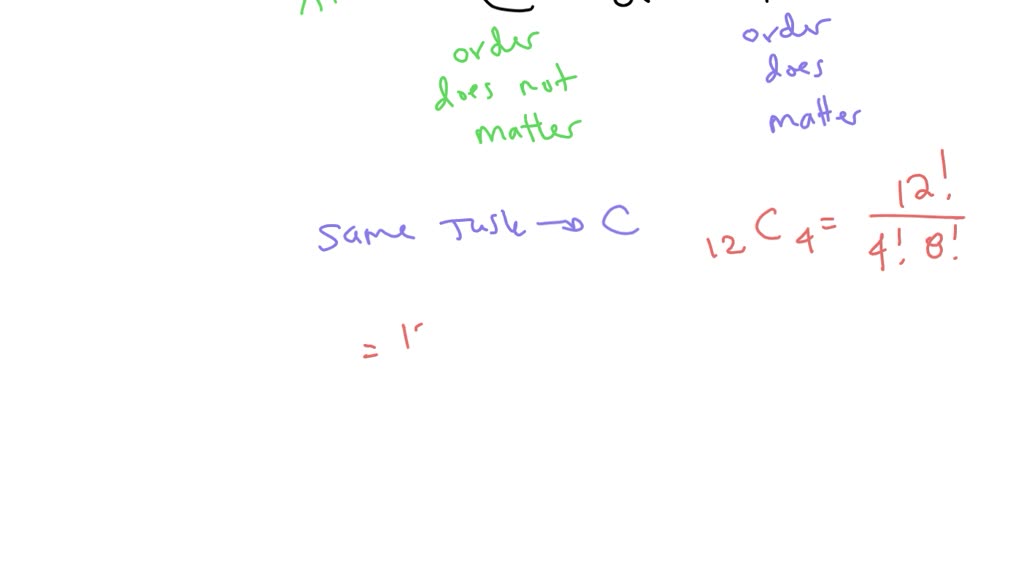 order
does not
matter
order
does
matter
same Task → C
12C4 = 12! / 4! 8!
= 1